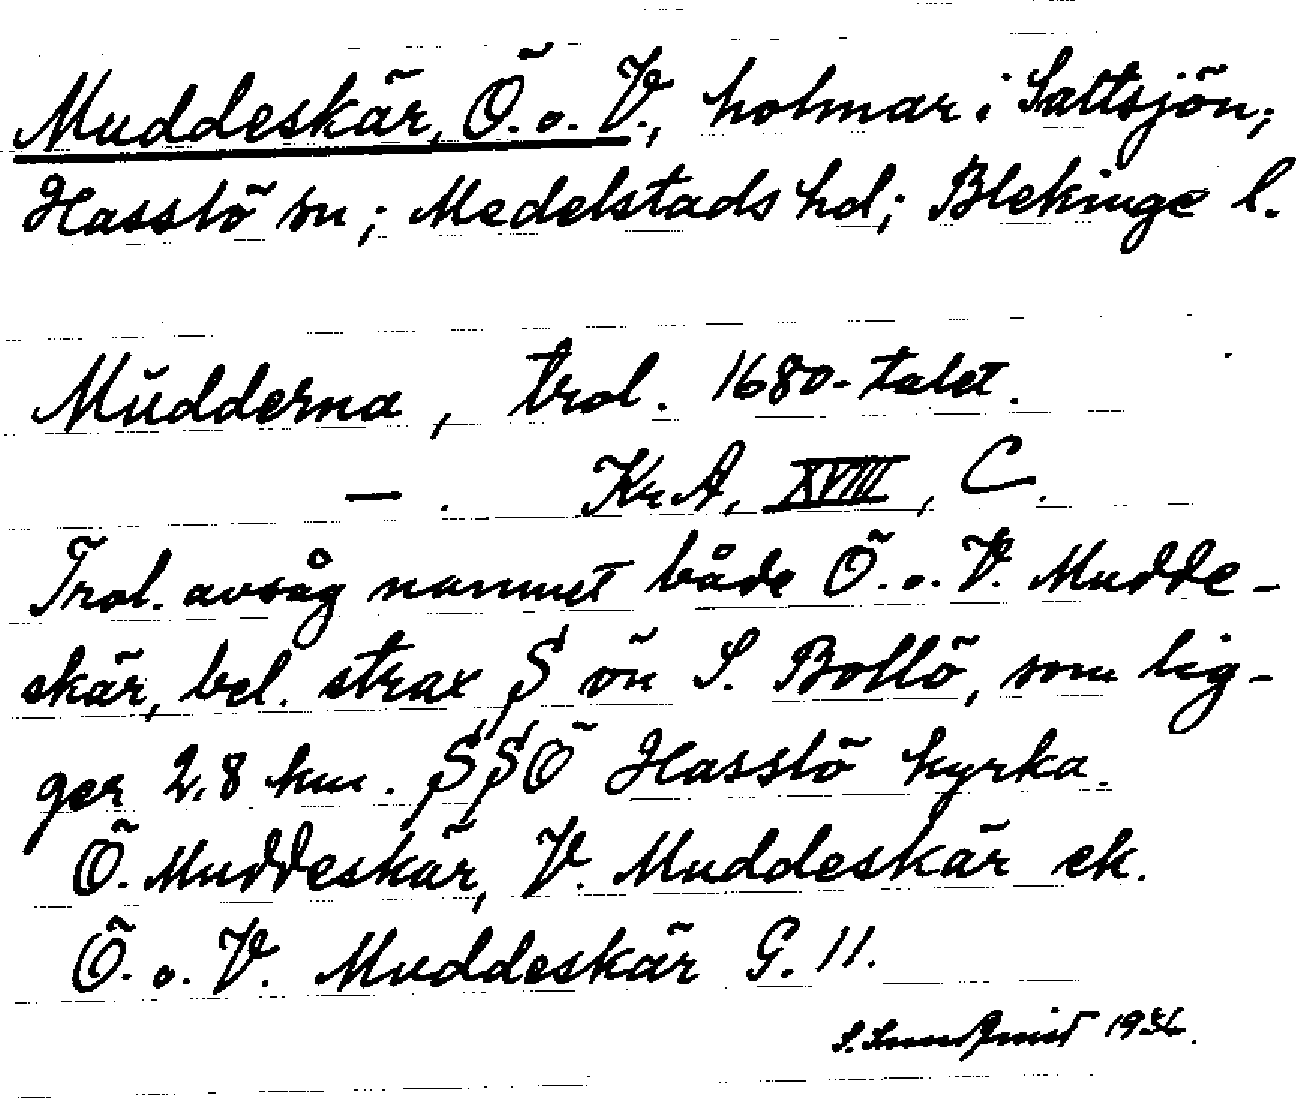 Muddeskär, Ö. o. V., holmar i Saltsjön;
Hasslö sn; Medelstads hd; Blekinge l.
Mŭdderna, trol. 1680-talet.
— . Kr.A, XVIII, C.
Trol. avsåg namnet både Ö. o. V. Mudde-
skär, bel. strax S ön S. Bollö, som lig-
ger 2,8 km. SSÖ Hasslö kyrka.
Ö. Muddeskär, V. Muddeskär ek.
Ö. o. V. Muddeskär G. 11.
S. 1934.